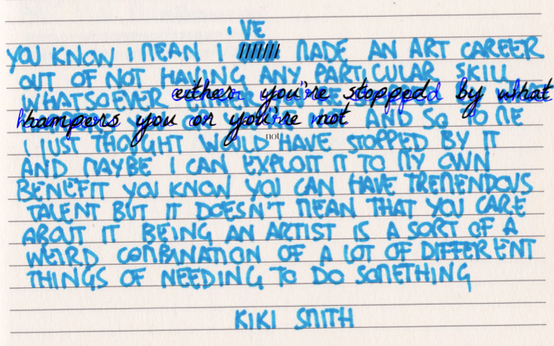 I'VE
YOU KNOW I MEAN I MADE AN ART CAREER
OUT OF NOT HAVING ANY PARTICULAR SKILL
WHATSOEVER either you're stopped by what
hampers you or you're not AND SO TO ME
not
I JUST THOUGHT WOULD HAVE STOPPED BY IT
AND MAYBE I CAN EXPLOIT IT TO MY OWN
BENEFIT YOU KNOW YOU CAN HAVE TREMENDOUS
TALENT BUT IT DOESN'T MEAN THAT YOU CARE
ABOUT IT BEING AN ARTIST IS A SORT OF A
WEIRD COMBINATION OF A LOT OF DIFFERENT
THINGS OF NEEDING TO DO SOMETHING
KIKI SMITH